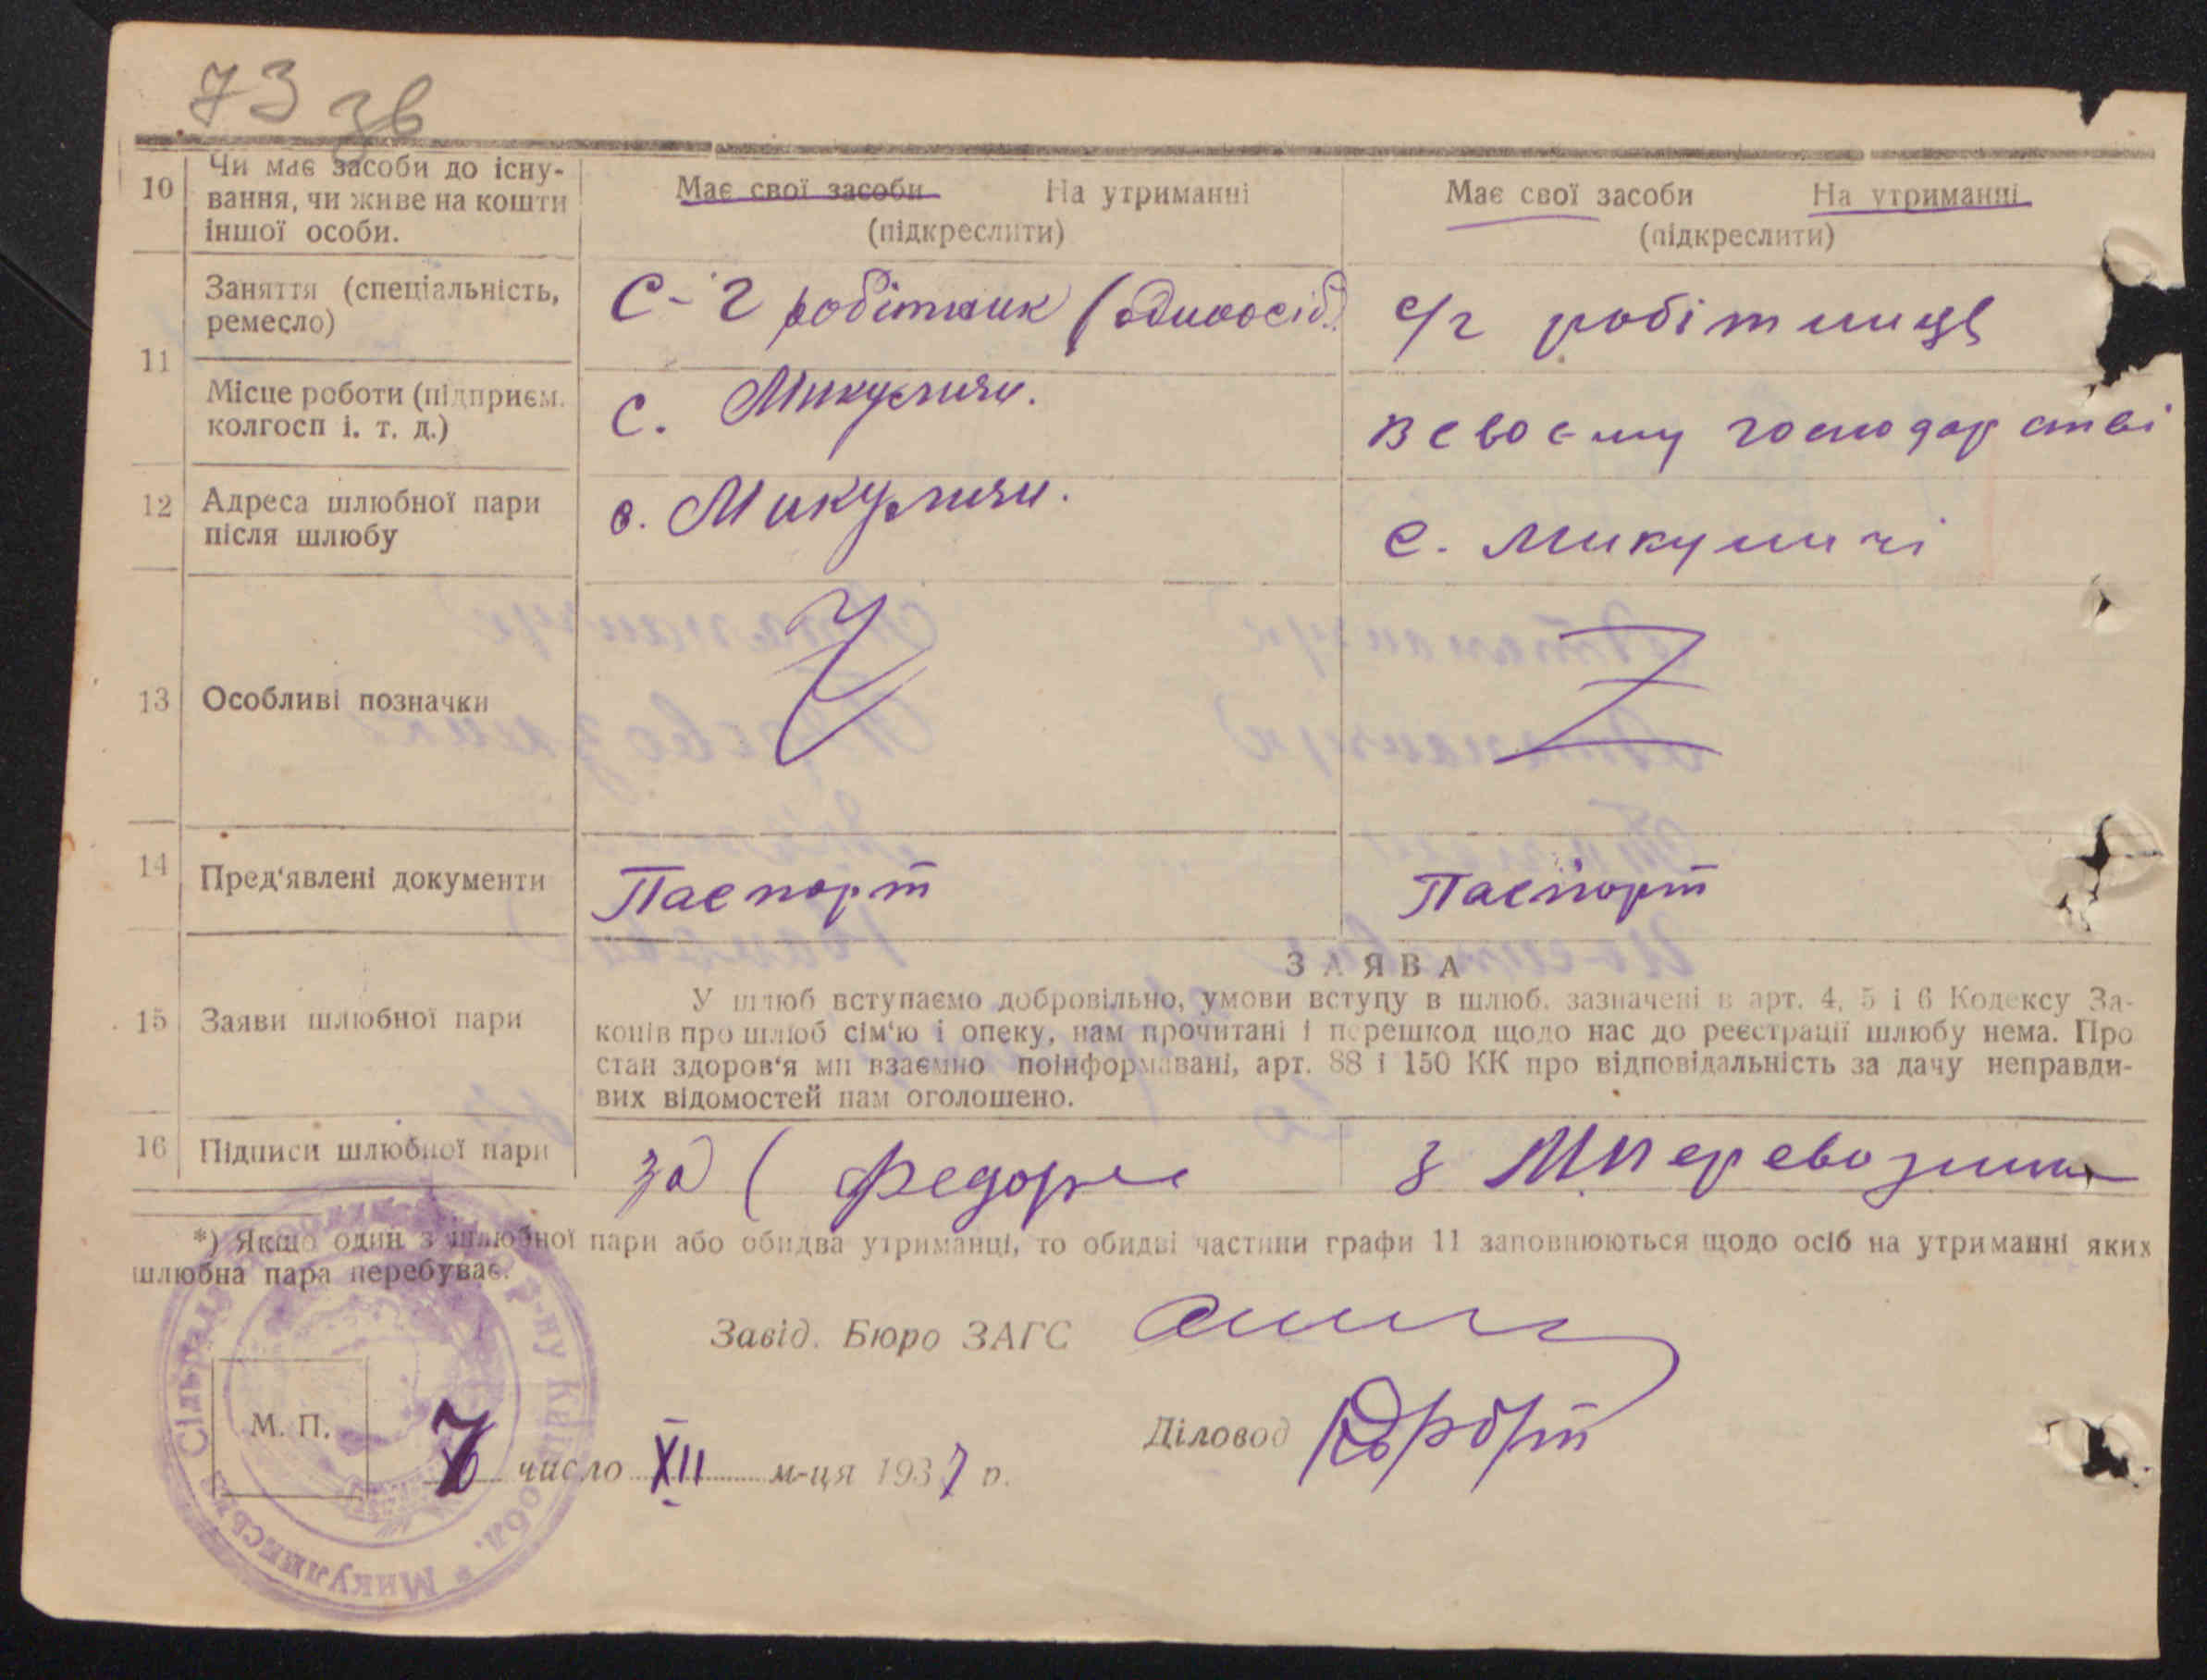 73 зв
10 Чи має засоби до існу-
вання, чи живе на кошти
іншої особи.
Має свої засоби На утриманні
(підкреслити)
Має свої засоби На утриманні
(підкреслити)
11 Заняття (спеціальність,
ремесло)
С-г робітник (одноосіб.)
с/г робітниця
Місце роботи (підприєм.
колгосп і. т. д.)
с. Микуличи.
в своєму господарстві
12 Адреса шлюбної пари
після шлюбу
с. Микуличи.
с. Микуличі
13 Особливі позначки
Z
Z
14 Пред'явлені документи
Паспорт
Паспорт
15 Заяви шлюбної пари
ЗАЯВА
У шлюб вступаємо добровільно, умови вступу в шлюб. зазначені в арт. 4, 5 і 6 Кодексу За-
конів про шлюб сім'ю і опеку, нам прочитані і перешкод щодо нас до реєстрації шлюбу нема. Про
стан здоров'я ми взаємно поінформавані, арт. 88 і 150 КК про відповідальність за дачу неправди-
вих відомостей нам оголошено.
16 Підписи шлюбної пари
за (
з
*) Якщо один з шлюбної пари або обидва утриманці, то обидві частини графи 11 заповнюються щодо осіб на утриманні яких
шлюбна пара перебуває.
Завід. Бюро ЗАГС
Діловод
М. П.
7 число XII м-ця 1937 р.
Микулицька Сільрада р-ну Київ обл. *